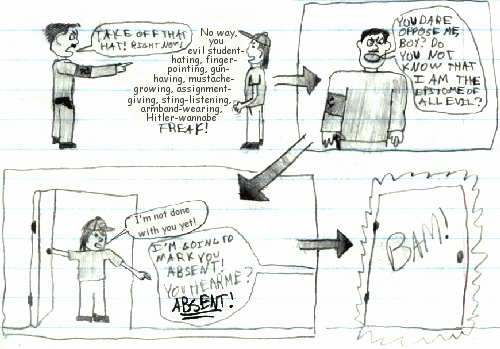 TAKE OFF THAT
HAT! RIGHT NOW!
No way,
you
evil student-
hating, finger-
pointing, gun-
having, mustache-
growing, assignment-
giving, sting-listening,
armband-wearing,
Hitler-wannabe
FREAK!
YOU DARE
OPPOSE ME,
BOY? DO
YOU NOT
KNOW THAT
I AM THE
EPITOME OF
ALL EVIL?
I'm not done
with you yet!
I'M GOING TO
MARK YOU
ABSENT!
YOU HEAR ME?
ABSENT!
BAM!